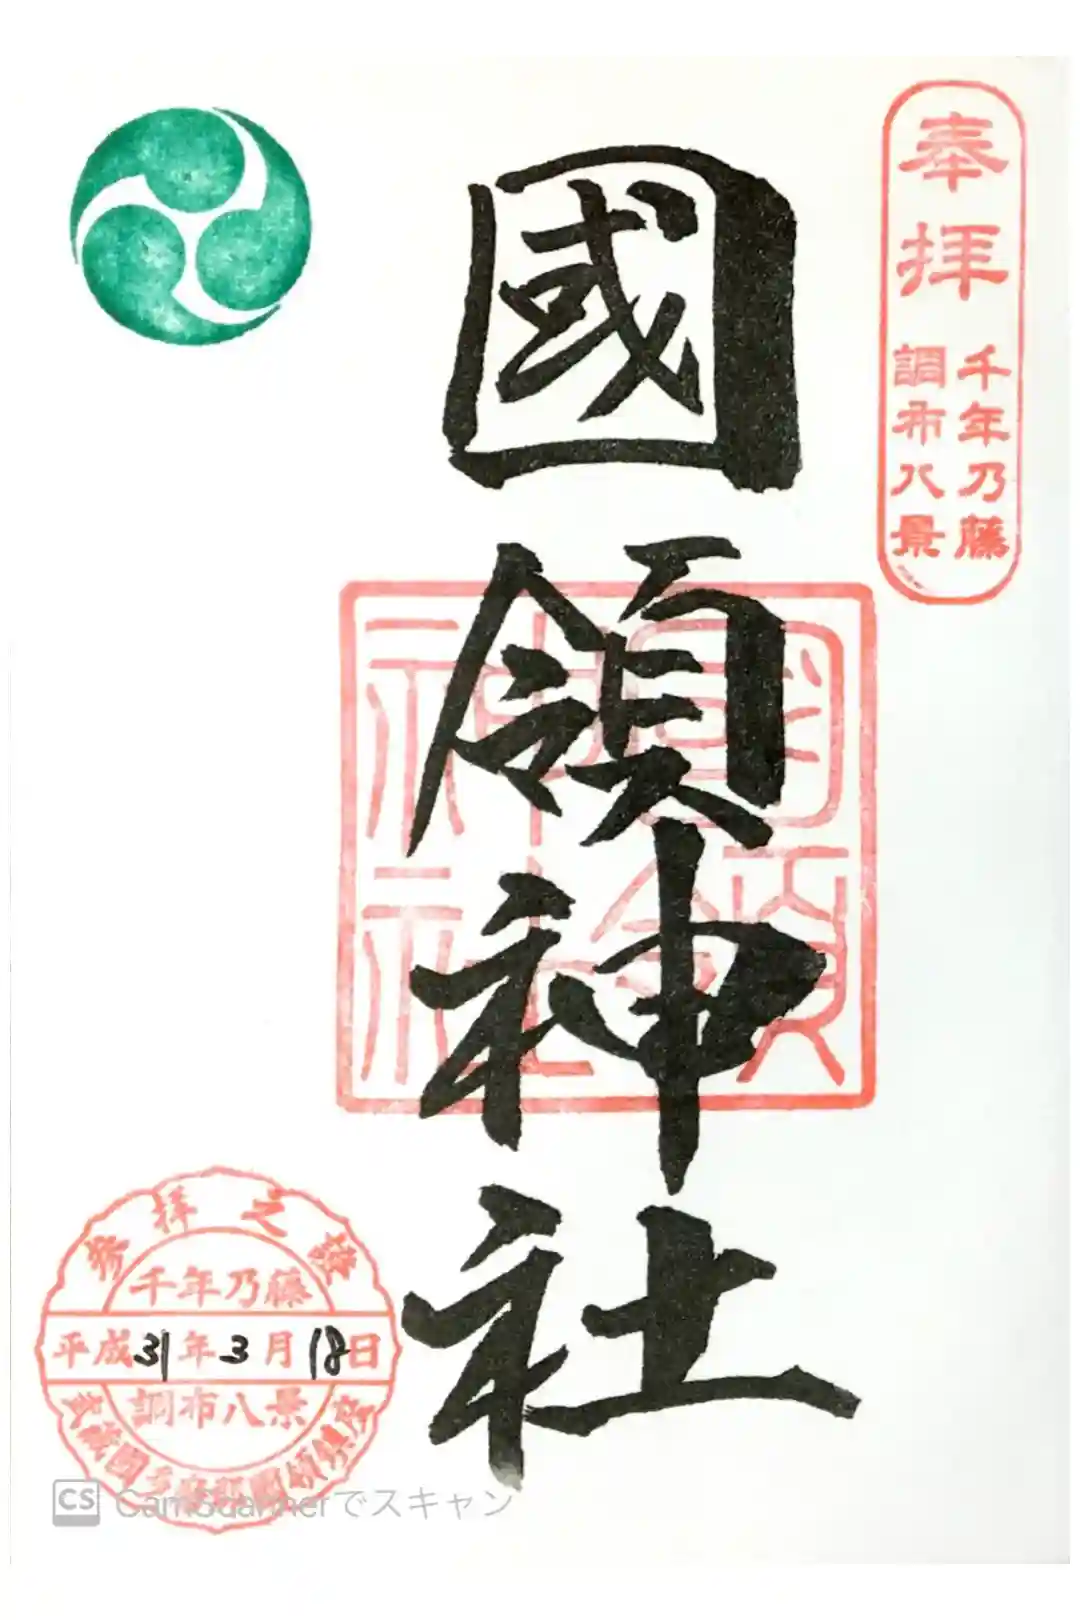 奉拝
千年乃藤
調布八景
國領神社
國領神社
参拝之證
千年乃藤
平成31年3月18日
調布八景
CS CamScannerでスキャン